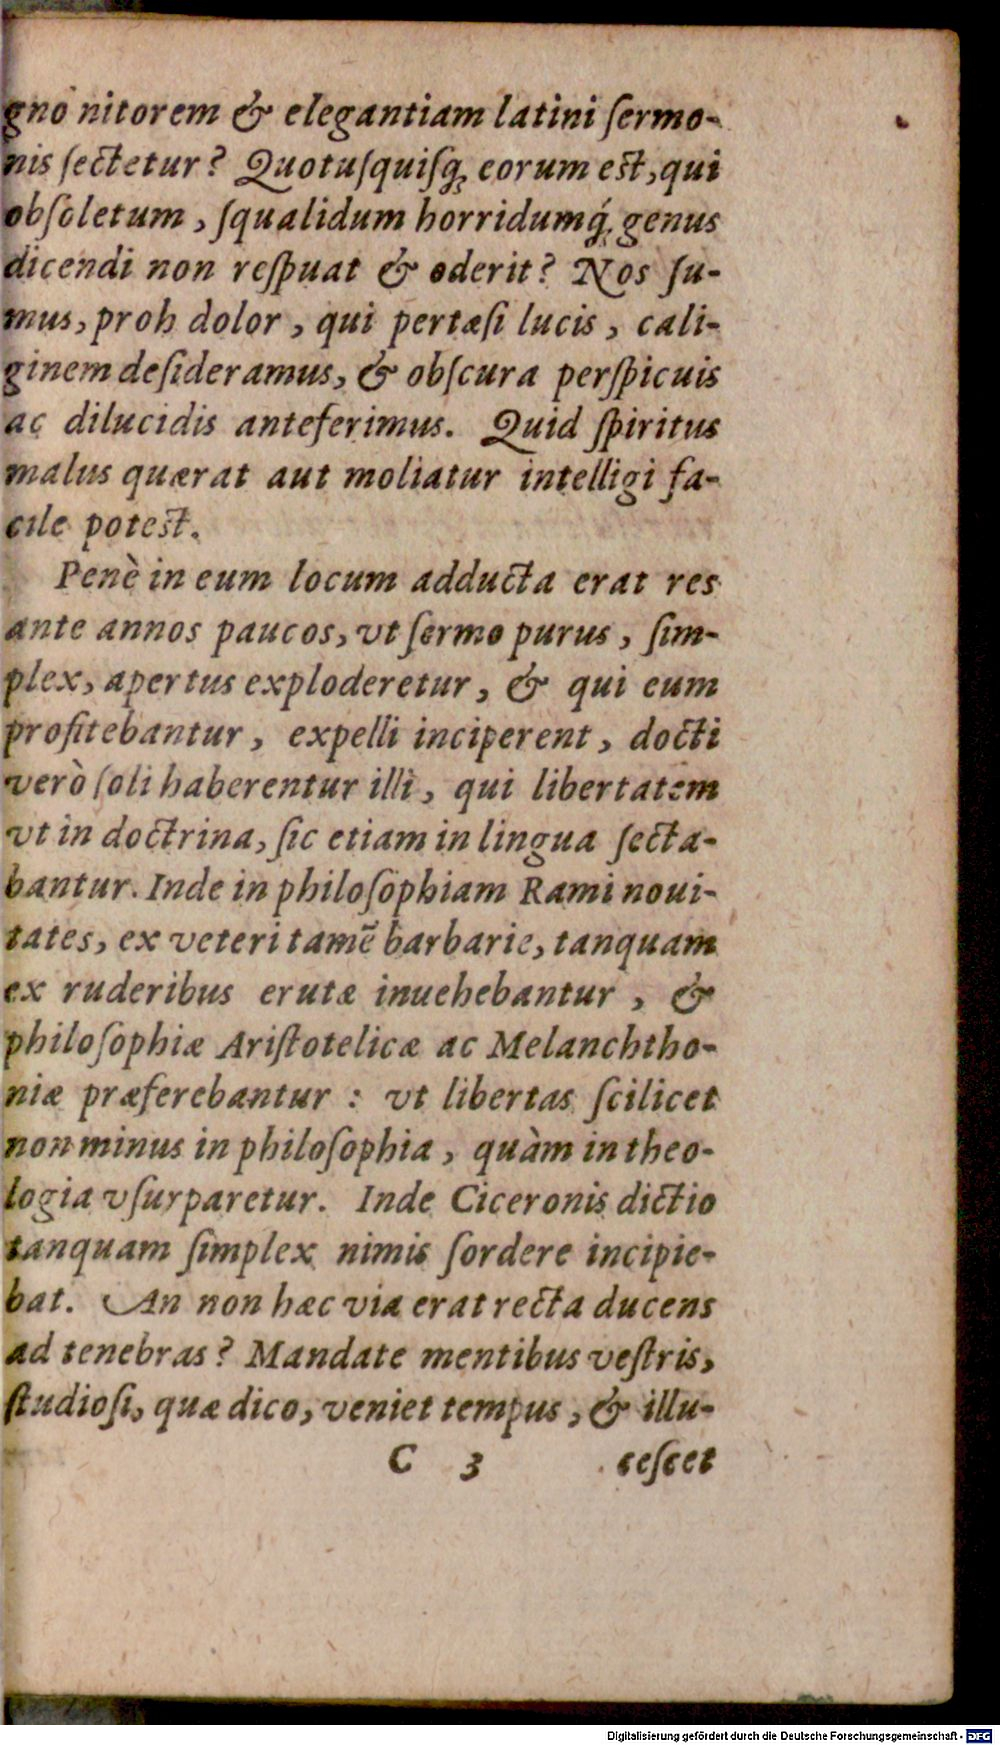 gno nitorem & elegantiam latini ſermo-
nis ſectetur? Quotuſquiſq́; eorum est, qui
obſoletum, ſqualidum horridumq́; genus
dicendi non reſpuat & oderit? Nos ſu-
mus, proh dolor, qui pertæſi lucis, cali-
ginem deſideramus, & obſcura perſpicuis
ac dilucidis anteferimus. Quid ſpiritus
malus quærat aut moliatur intelligi fa-
cile potest.
Penè in eum locum adducta erat res
ante annos paucos, vt ſermo purus, ſim-
plex, apertus exploderetur, & qui eum
profitebantur, expelli inciperent, docti
verò ſoli haberentur illi, qui libertatem
vt in doctrina, ſic etiam in lingua ſecta-
bantur. Inde in philoſophiam Rami noui-
tates, ex veteri tamẽ barbarie, tanquam
ex ruderibus erutæ inuehebantur, &
philoſophiæ Ariſtotelicæ ac Melanchtho-
niæ præferebantur: vt libertas ſcilicet
non minus in philoſophia, quàm in theo-
logia vſurparetur. Inde Ciceronis dictio
tanquam ſimplex nimis ſordere incipie-
bat. An non hæc via erat recta ducens
ad tenebras? Mandate mentibus veſtris,
ſtudioſi, quæ dico, veniet tempus, & illu-
C 3 ceſcet
Digitalisierung gefördert durch die Deutsche Forschungsgemeinschaft - DFG